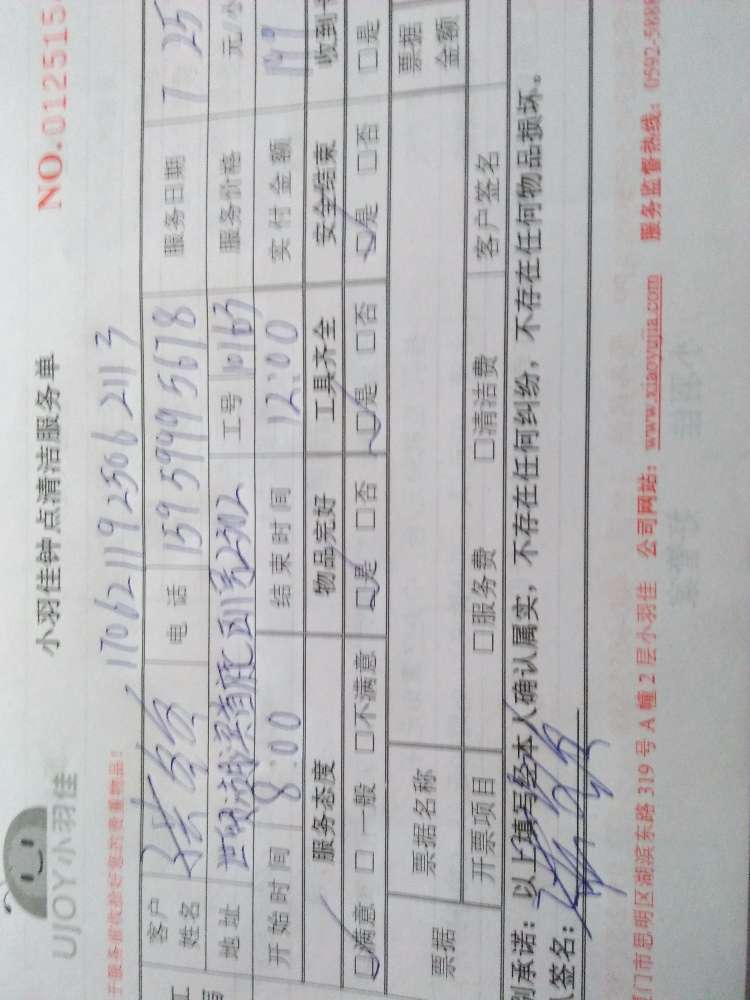 UJOY小羽佳
小羽佳钟点清洁服务单
NO.0125154
17062119250621113
客户姓名 电话 159 5999 5678 服务日期 7 25
地址 2302 工号 10163 服务价格 元/小
开始时间 8:00 结束时间 12:00 实付金额 149
服务态度 物品完好 工具齐全 安全结束 收到
☑满意 □一般 □不满意 ☑是 □否 ☑是 □否 ☑是 □否 □是
票据 票据名称 票据金额
开票项目 □服务费 □清洁费 客户签名
别承诺：以上填写经本人确认属实，不存在任何纠纷，不存在任何物品损坏。
签名：
门市思明区湖滨东路 319 号 A 幢 2 层小羽佳 公司网站：www.xiaoyujia.com 服务监督热线：0592-588